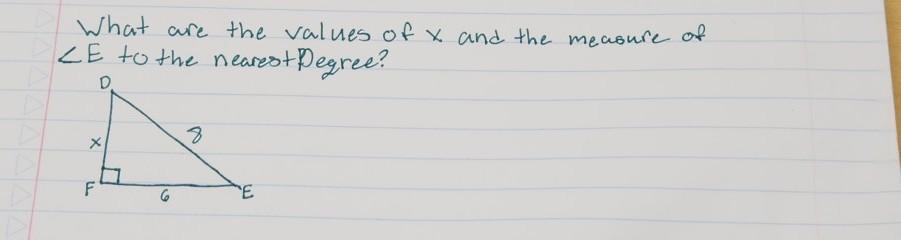 What are the values of x and the measure of
∠E to the nearest Degree?
D
x
8
F
6
E